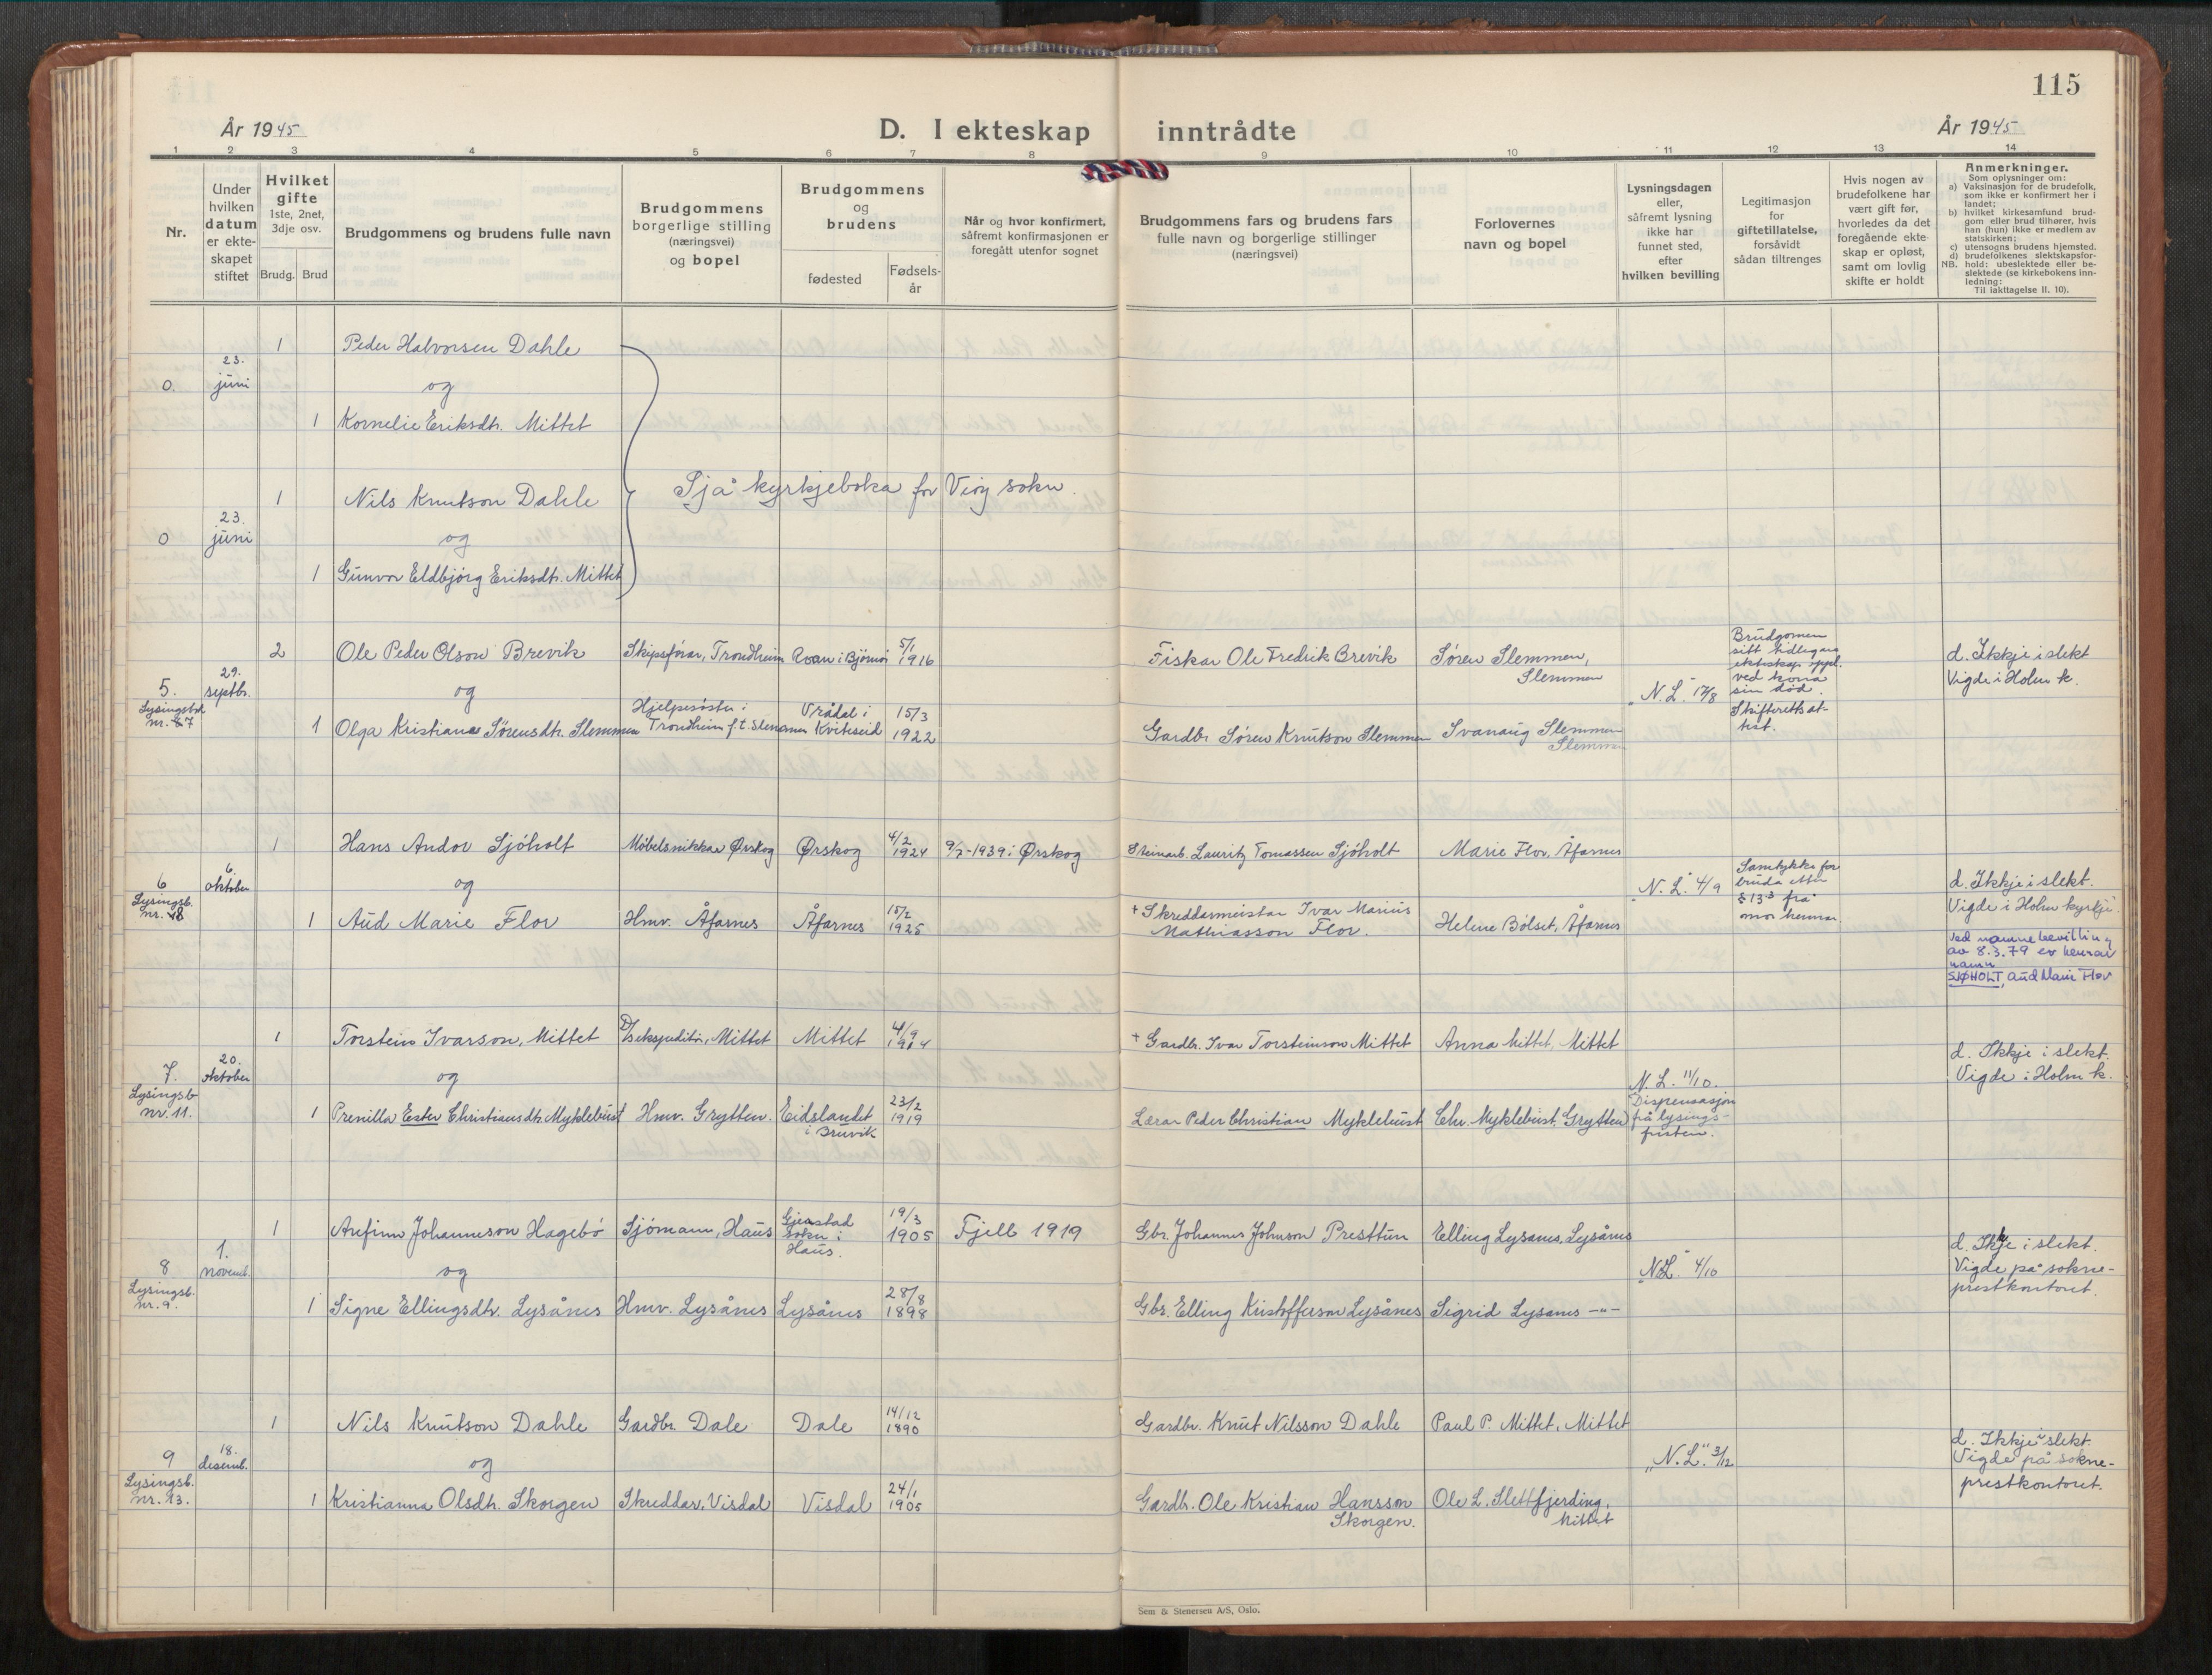 115
År 1945
D. I ekteskap inntrådte
År 1945
1 2 3 4 5 6 7 8 9 10 11 12 13 14
Nr.
Under
hvilken
datum
er ekte-
skapet
stiftet
Hvilket
gifte
1ste, 2net,
3dje osv.
Brudg. Brud
Brudgommens og brudens fulle navn
Brudgommens
borgerlige stilling
(næringsvei)
og bopel
Brudgommens
og
brudens
fødested
Fødsels-
år
Når og hvor konfirmert,
såfremt konfirmasjonen er
foregått utenfor sognet
Brudgommens fars og brudens fars
fulle navn og borgerlige stillinger
(næringsvei)
Forlovernes
navn og bopel
Lysningsdagen
eller,
såfremt lysning
ikke har
funnet sted,
efter
hvilken bevilling
Legitimasjon
for
giftetillatelse,
forsåvidt
sådan tiltrenges
Hvis nogen av
brudefolkene har
vært gift før,
hvorledes da det
foregående ekte-
skap er opløst,
samt om lovlig
skifte er holdt
Anmerkninger.
Som oplysninger om:
a) Vaksinasjon for de brudefolk,
som ikke er konfirmert her i
landet;
b) hvilket kirkesamfund brud-
gom eller brud tilhører, hvis
han (hun) ikke er medlem av
statskirken;
c) utensogns brudens hjemsted.
d) brudefolkenes slektskapsfor-
NB. hold: ubeslektede eller be-
slektede (se kirkebokens inn-
ledning:
Til iakttagelse II. 10).
1 Peder Halvorsen Dahle
0. 23. juni og
1 Kornelie Eriksdtr. Mittet
1 Nils Knutson Dahle
Sjå kyrkjeboka for Vøy sokn.
0 23. juni og
1 Gunvor Eldbjørg Eriksdtr. Mittet
2 Ole Peder Olson Brevik Skipsförar, Trondheim Roan i Bjørnör 5/1 1916 Fiskar Ole Fredrik Brevik Sören Slemmen,
Slemmen
5. 29. septbr. og
Lysingsbok
nr. 7
1 Olga Kristiane Sörensdtr. Slemmen Hjelpesöster i
Trondheim f.t. Slemmen Vrådal i
Kviteseid 15/3
1922 Gardbr. Sören Knutson Slemmen Svanaug Slemmen
Slemmen
"N. L." 17/8
Brudgomen
sitt tidlegare
ekteskap oppl.
ved kona
sin död.
Skifterettsat-
test.
d. Ikkje i slekt
Vigde i Holm k.
1 Hans Andor Sjöholt Möbelsnikkar Ørskog Ørskog 4/2 1924 9/7-1939 i Ørskog Steinarb. Lauritz Tomassen Sjöholt Marie Flor, Åfarnes
6 6. oktober og
Lysingsb.
nr. 8
1 Aud Marie Flor Hmv. Åfarnes Åfarnes 15/2
1925 + Skreddarmeistar Ivar Marius
Mathiasson Flor. Helene Bölset, Åfarnes
"N. L." 4/9
Samtykke for
bruda etter
§ 13³ frå
mor hennar.
d. Ikkje i slekt.
Vigde i Holm kyrkje.
Ved namnebevilling
av 8.3.79 er hennar
namn
SJØHOLT, Aud Marie Flor
1 Torstein Ivarson Mittet D/S ekspeditör, Mittet Mittet 4/9
1914 + Gardbr. Ivar Torsteinson Mittet Anna Mittet, Mittet
7. 20. oktober og
Lysingsb
nr. 11.
1 Prenilla Ester Christiansdtr. Myklebust Hmv. Grytten. Eidslandet
i Bruvik 23/2
1919 Lærar Peder Christian Myklebust Chr. Myklebust, Grytten
N. L. 11/10.
Dispensasjon
frå lysings-
fristen.
d. Ikkje i slekt.
Vigde i Holm k.
1 Arnfinn Johannesson Hagebö Sjömann, Haus Gjerstad
sokn i
Haus. 19/3
1905 Fjell 1919 Gbr. Johannes Johnson Presttun Elling Lysånes, Lysånes
8 1. novemb. og
Lysingsb.
nr. 9.
1 Signe Ellingsdtr. Lysånes Hmv. Lysånes Lysånes 28/8
1898 Gbr. Elling Kristofferson Lysånes Sigrid Lysånes -"-
"N.L." 4/10
d. Ikkje i slekt.
Vigde på sokne-
prestkontoret.
1 Nils Knutson Dahle Gardbr. Dale Dale 14/12
1890 Gardbr. Knut Nilsson Dahle Paul P. Mittet, Mittet
9 18. desemb. og
Lysingsb.
nr. 13.
1 Kristianna Olsdtr. Skorgen Skreddar, Visdal Visdal 24/1
1905 Gardbr. Ole Kristian Hansson
Skorgen. Ole L. Slettfjerding,
Mittet
"N. L." 3/12
d. Ikkje i slekt.
Vigde på sokne-
prestkontoret.
Sem & Stenersen A/S, Oslo.